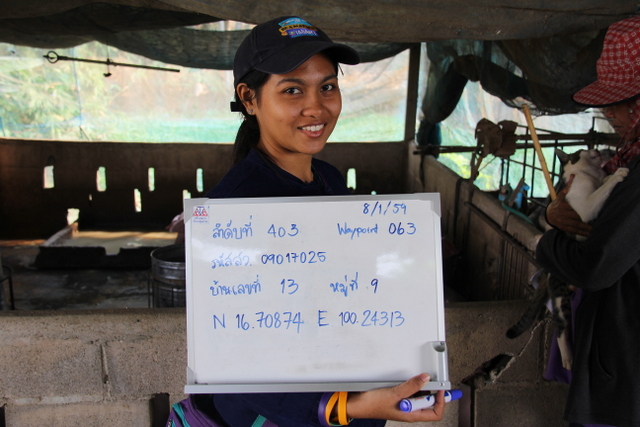 8/1/59
ลำดับที่ 403 Waypoint 063
รหัสสว. 09017025
บ้านเลขที่ 13 หมู่ที่ 9
N 16.70874 E 100.24313